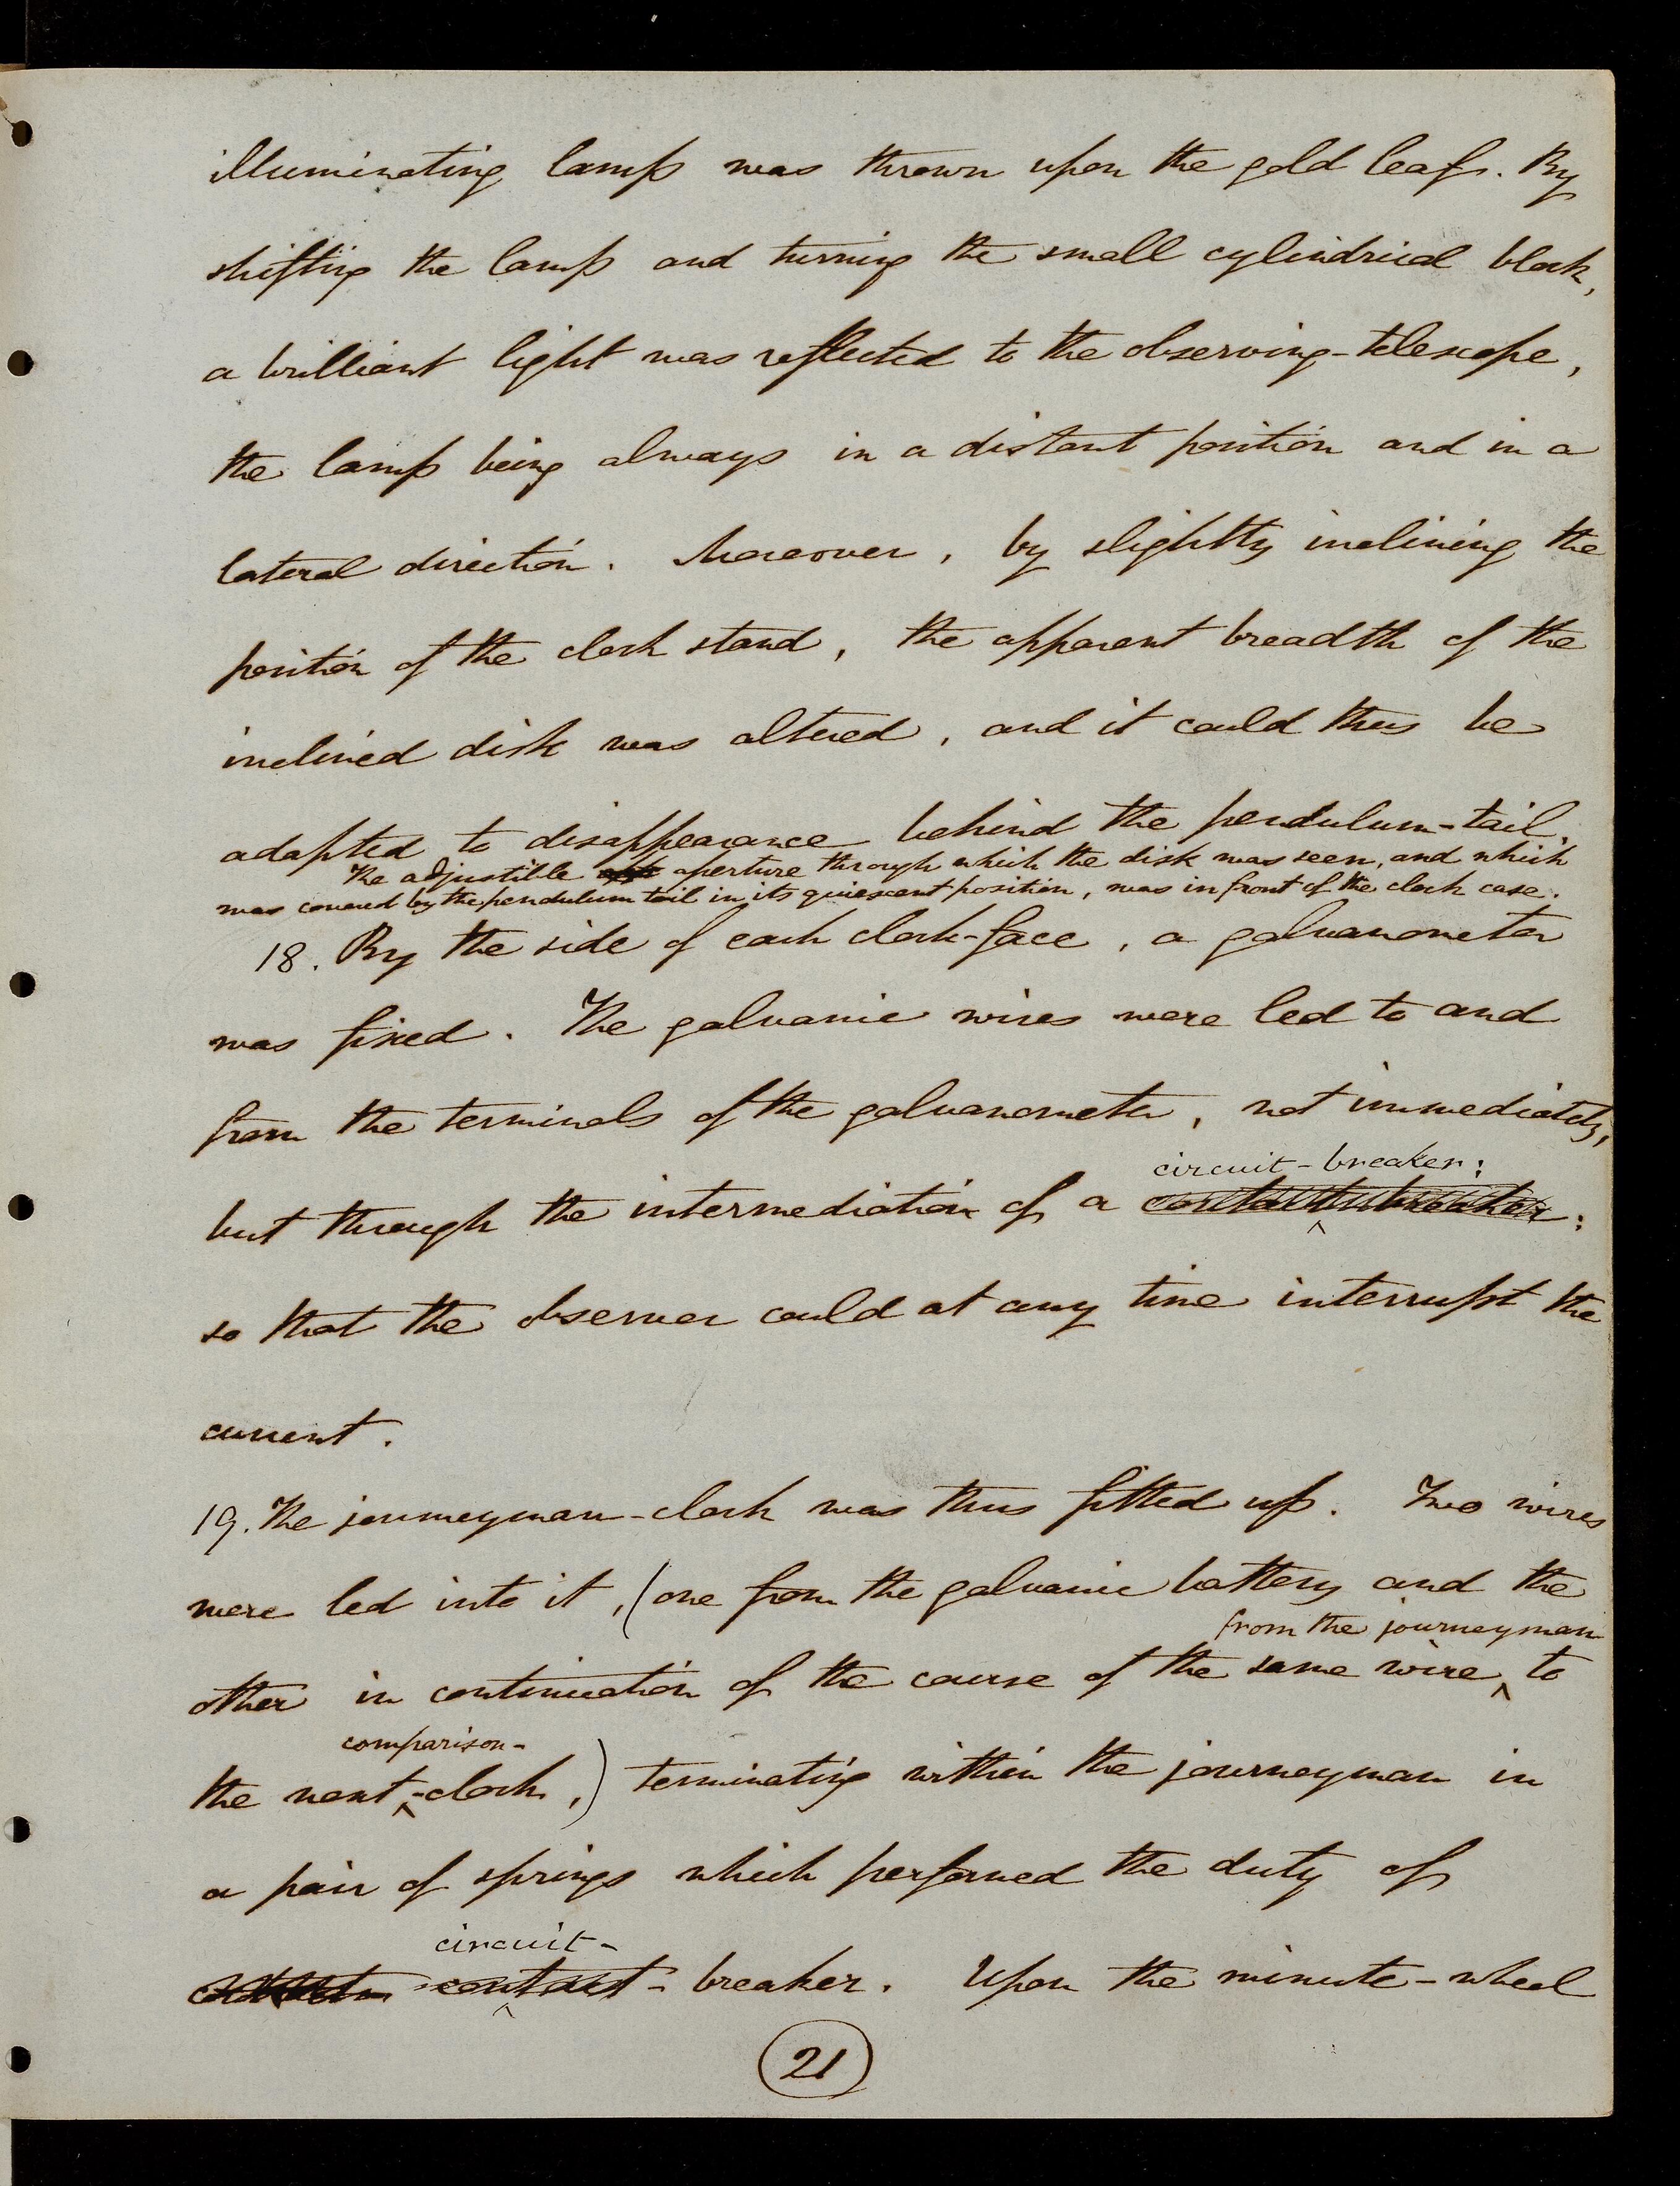 illuminating lamp was thrown upon the gold leaf. By
shifting the lamp and turning the small cylindrical block,
a brilliant light was reflected to the observing-telescope,
the lamp being always in a distant position and in a
lateral direction. Moreover, by slightly inclining the
position of the clock stand, the apparent breadth of the
inclined disk was altered, and it could thus be
adapted to disappearance behind the pendulum-tail.
The adjustible aperture through which the disk was seen, and which
was covered by the pendulum tail in its quiescent position, was in front of the clock case.
18. By the side of each clock-face, a galvanometer
was fixed. The galvanic wires were led to and
from the terminals of the galvanometer, not immediately,
circuit-breaker;
but through the intermediation of a contact-breaker;
so that the observer could at any time interrupt the
current.
19. The journeyman-clock was thus fitted up. Two wires
were led into it, (one from the galvanic battery and the
from the journeyman
other in continuation of the course of the same wire to
comparison-
the next -clock,) terminating within the journeyman in
a pair of springs which performed the duty of
circuit-
contact-breaker. Upon the minute-wheel
21